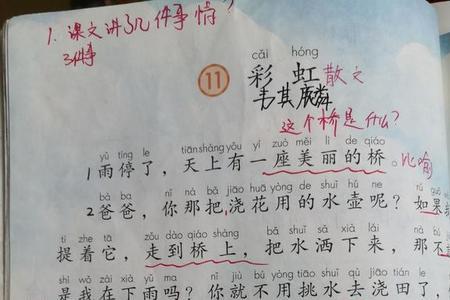 1. 课文讲了几件事情?
3件事
cǎi hóng
11 彩 虹 散文
韦其麟
这个桥是什么?
yǔ tíng le tiān shàng yǒu yí zuò měi lì de qiáo
1雨停了，天上有一座美丽的桥。比喻
bà ba nǐ nà bǎ jiāo huā yòng de shuǐ hú ne rú guǒ
2爸爸，你那把浇花用的水壶呢？如果
tí zhe tā zǒu dào qiáo shàng bǎ shuǐ sǎ xià lái nà bú
提着它，走到桥上，把水洒下来，那不
shì wǒ zài xià yǔ ma nǐ jiù bú yòng tiāo shuǐ qù jiāo tián le
是我在下雨吗？你就不用挑水去浇田了，